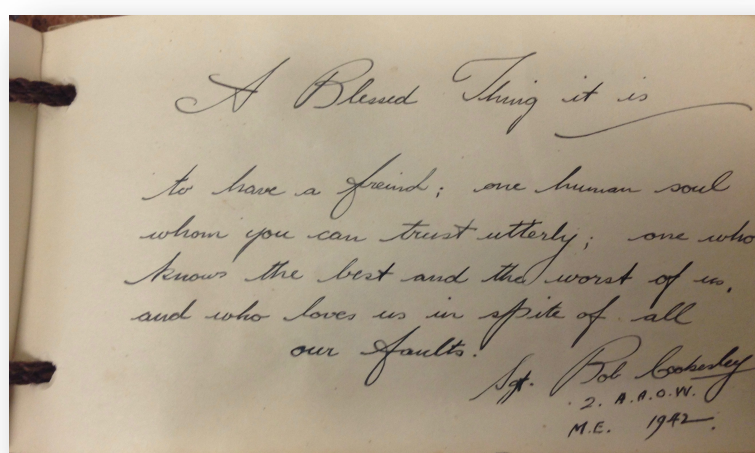 A Blessed Thing it is
to have a freind; one human soul
whom you can trust utterly; one who
knows the best and the worst of us,
and who loves us in spite of all
our faults.
Sgt. Bob
2. A.A.O.W.
M.E. 1942.